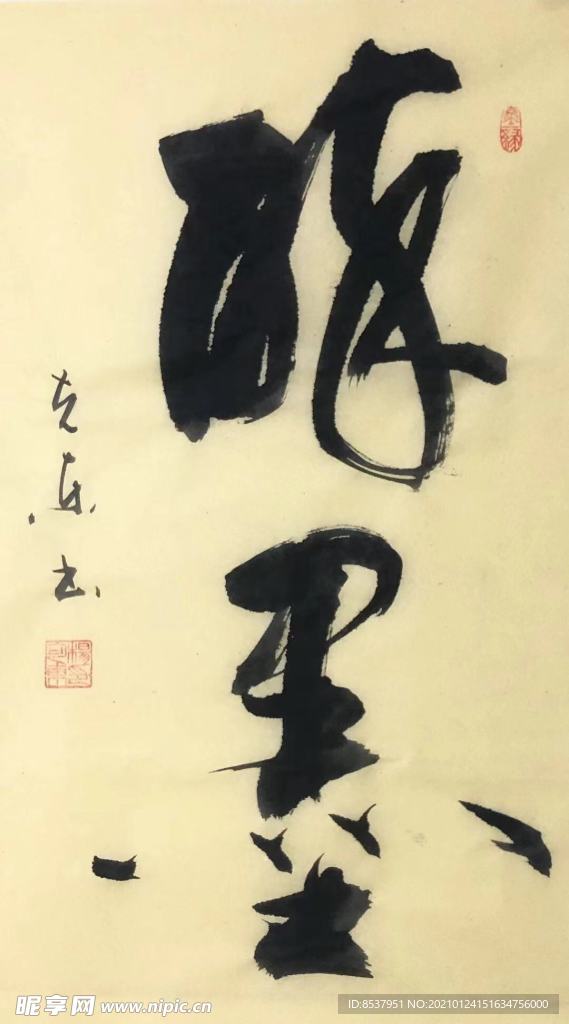 醉墨
克东书
昵享网 www.nipic.cn
ID:8537951 NO:20210124151634756000